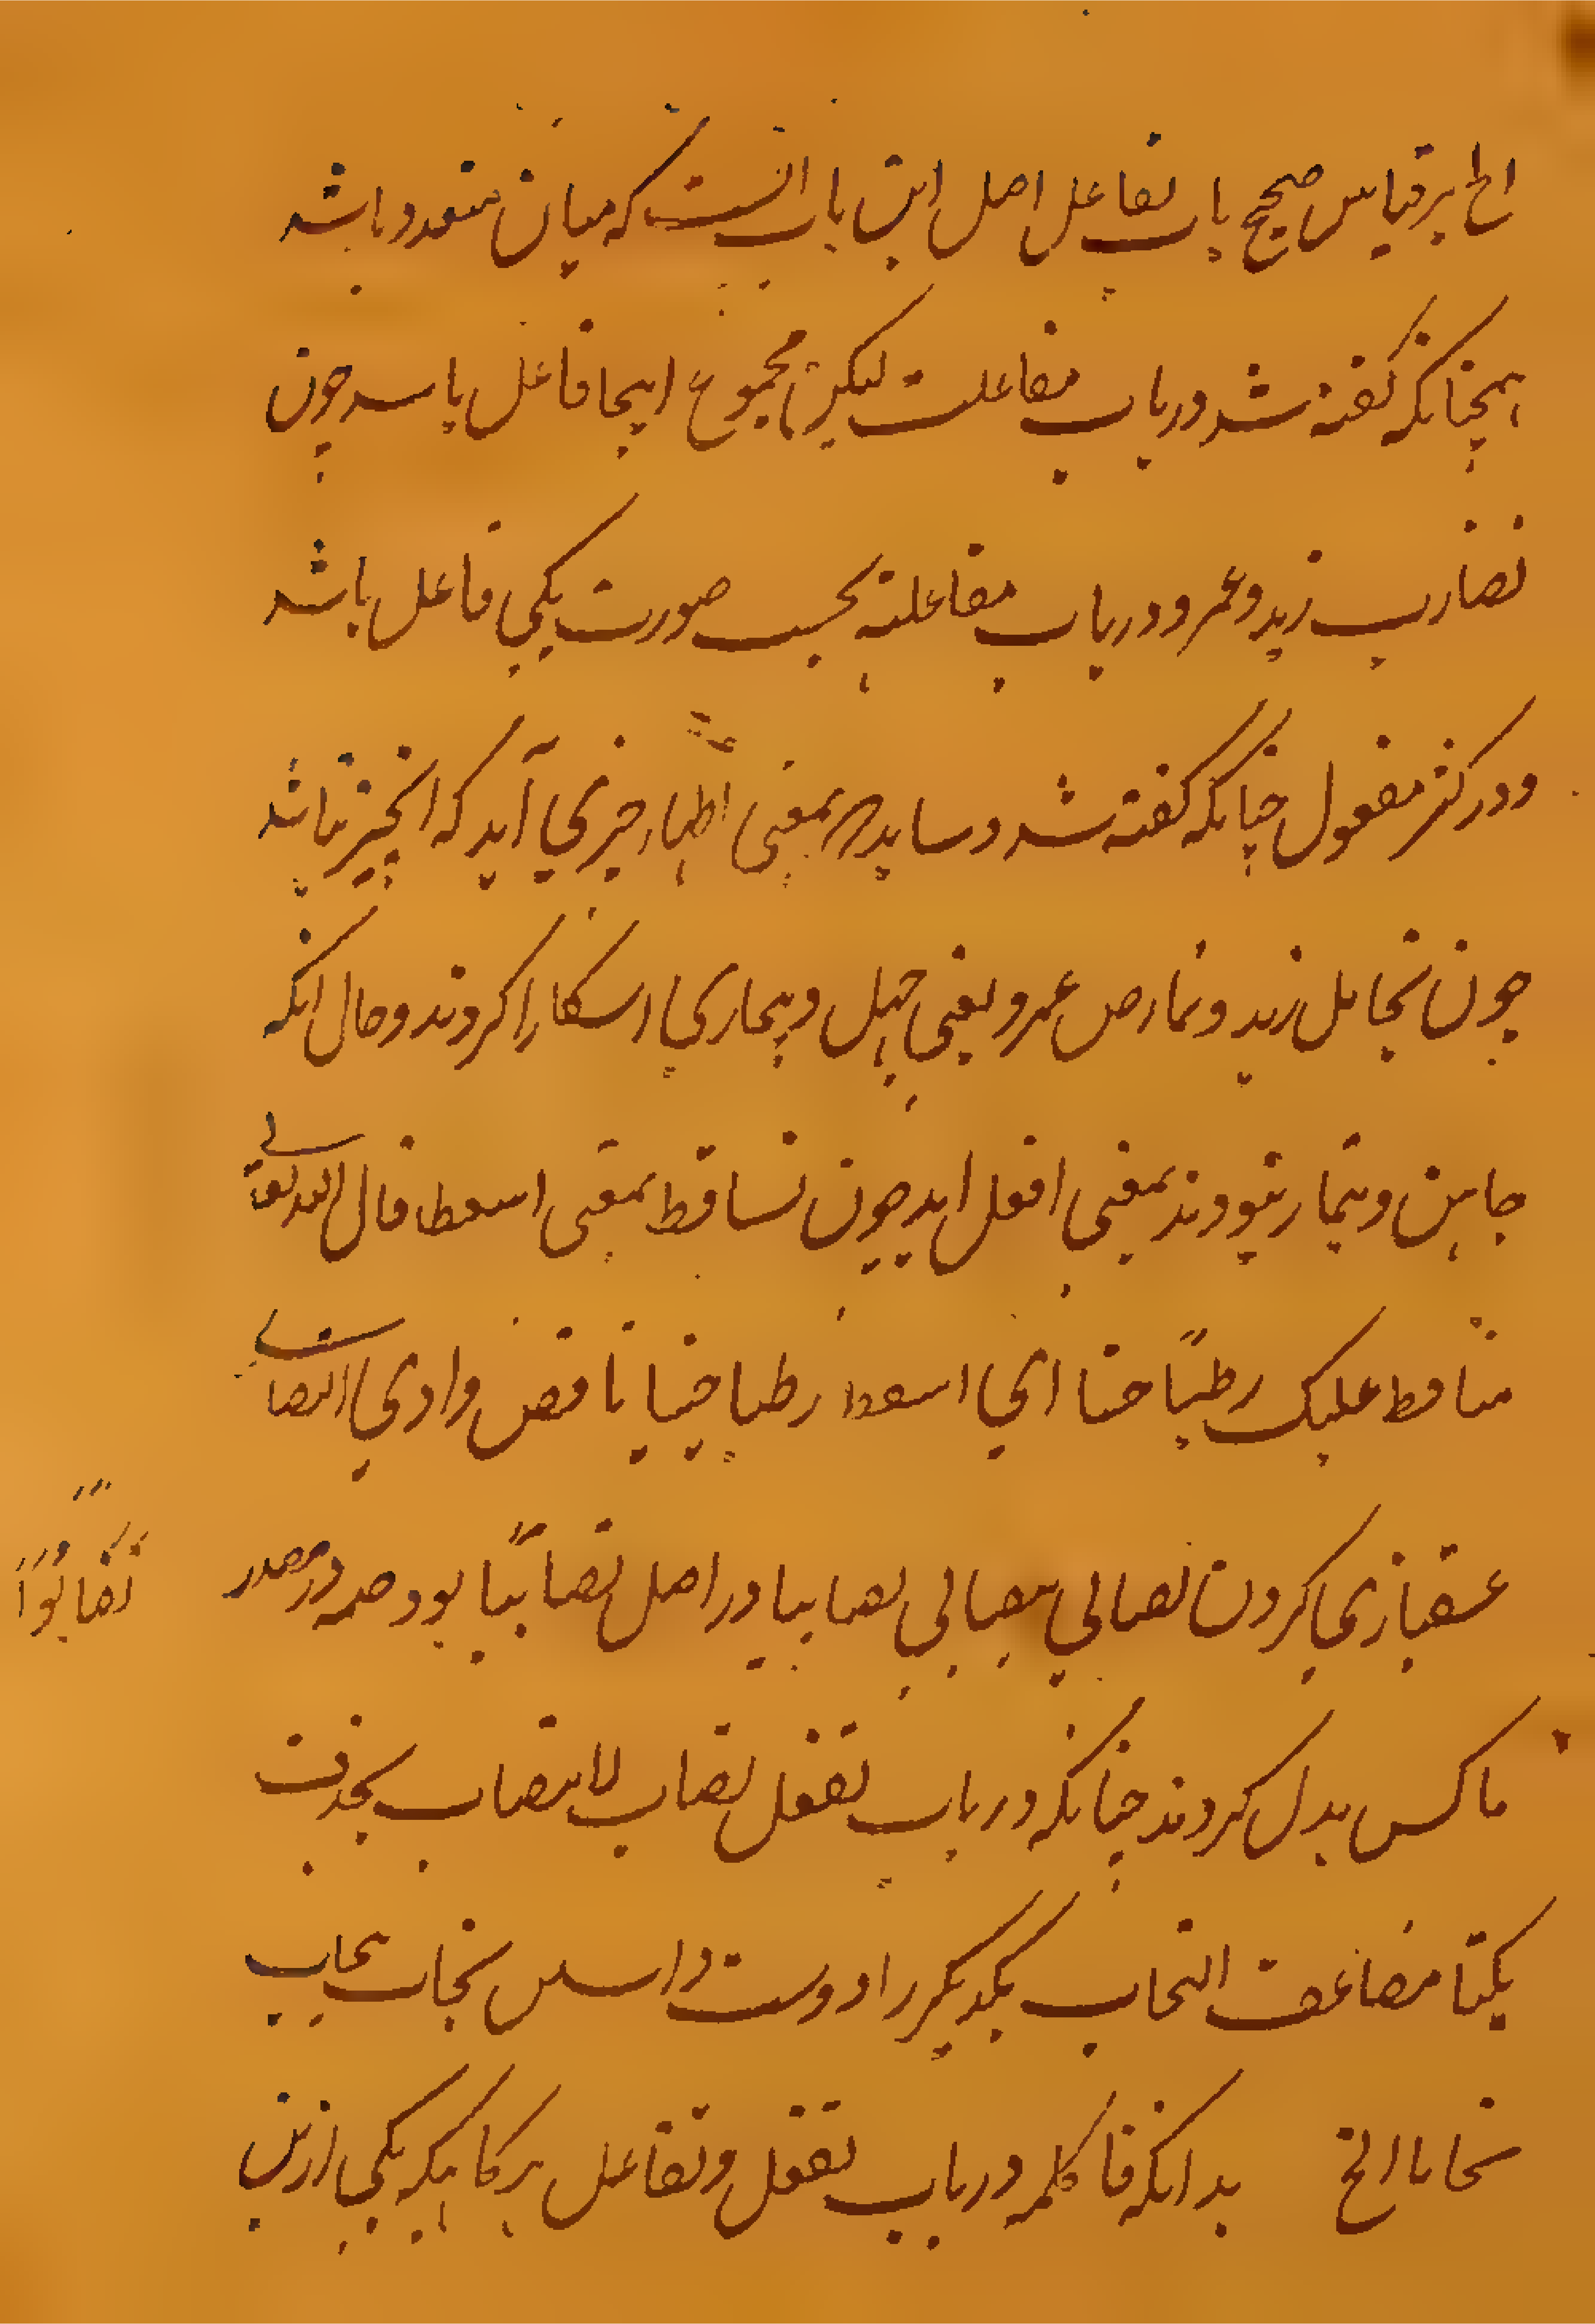 الخ بر قیاس صحیح باب تفاعل اصل این باب انست که میان متعدد باشد
همچنانکه گفته شد در باب مفاعلت لیکن مجموع اینجا فاعل باشد چون
تضارب زید و عمرو و در باب مفاعلته بحسب صورت یکی فاعل باشد
و در کثر مفعول چنانکه گفته شد و شاید بمعنی اظهار چیزی آید که انچیز نباشد
چون تجاهل زید و تمارض عمرو یعنی جهل و بیماری اشکارا کردند و حال انکه
جاهل و بیمار نبودند بمعنی افعل اید چون تساقط بمعنی اسقط قال الله تعالی
تساقط علیک رطبًا جنیا ای اسقط رطبا جنیا ناقص وادی التصابی
عشقبازی کردن تصابی یتصابی تصابیا در اصل تصابیًا بود ضمه در مصدر
تَصَابُوًا
با کسر بدل کردند چنانکه در باب تفعل تصاب لاتتصاب بحذفت
یکتا مضاعف التحاب یکدیگر را دوست داشتن تحاب یتحاب
تحابا الخ بدانکه فا کلمه در باب تفعل و تفاعل هرکاهیکه یکی ازین